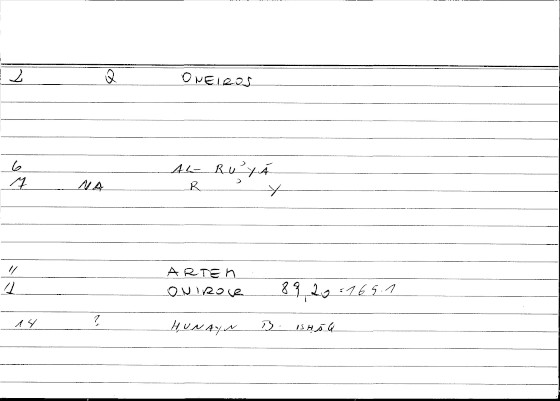 1 Q ONEIROS
6 AL- RU'YĀ
7 NA R ' Y
11 ARTEM
12 ONIROCR 89,20 = 165.1
14 ? HUNAYN B. ISHĀQ